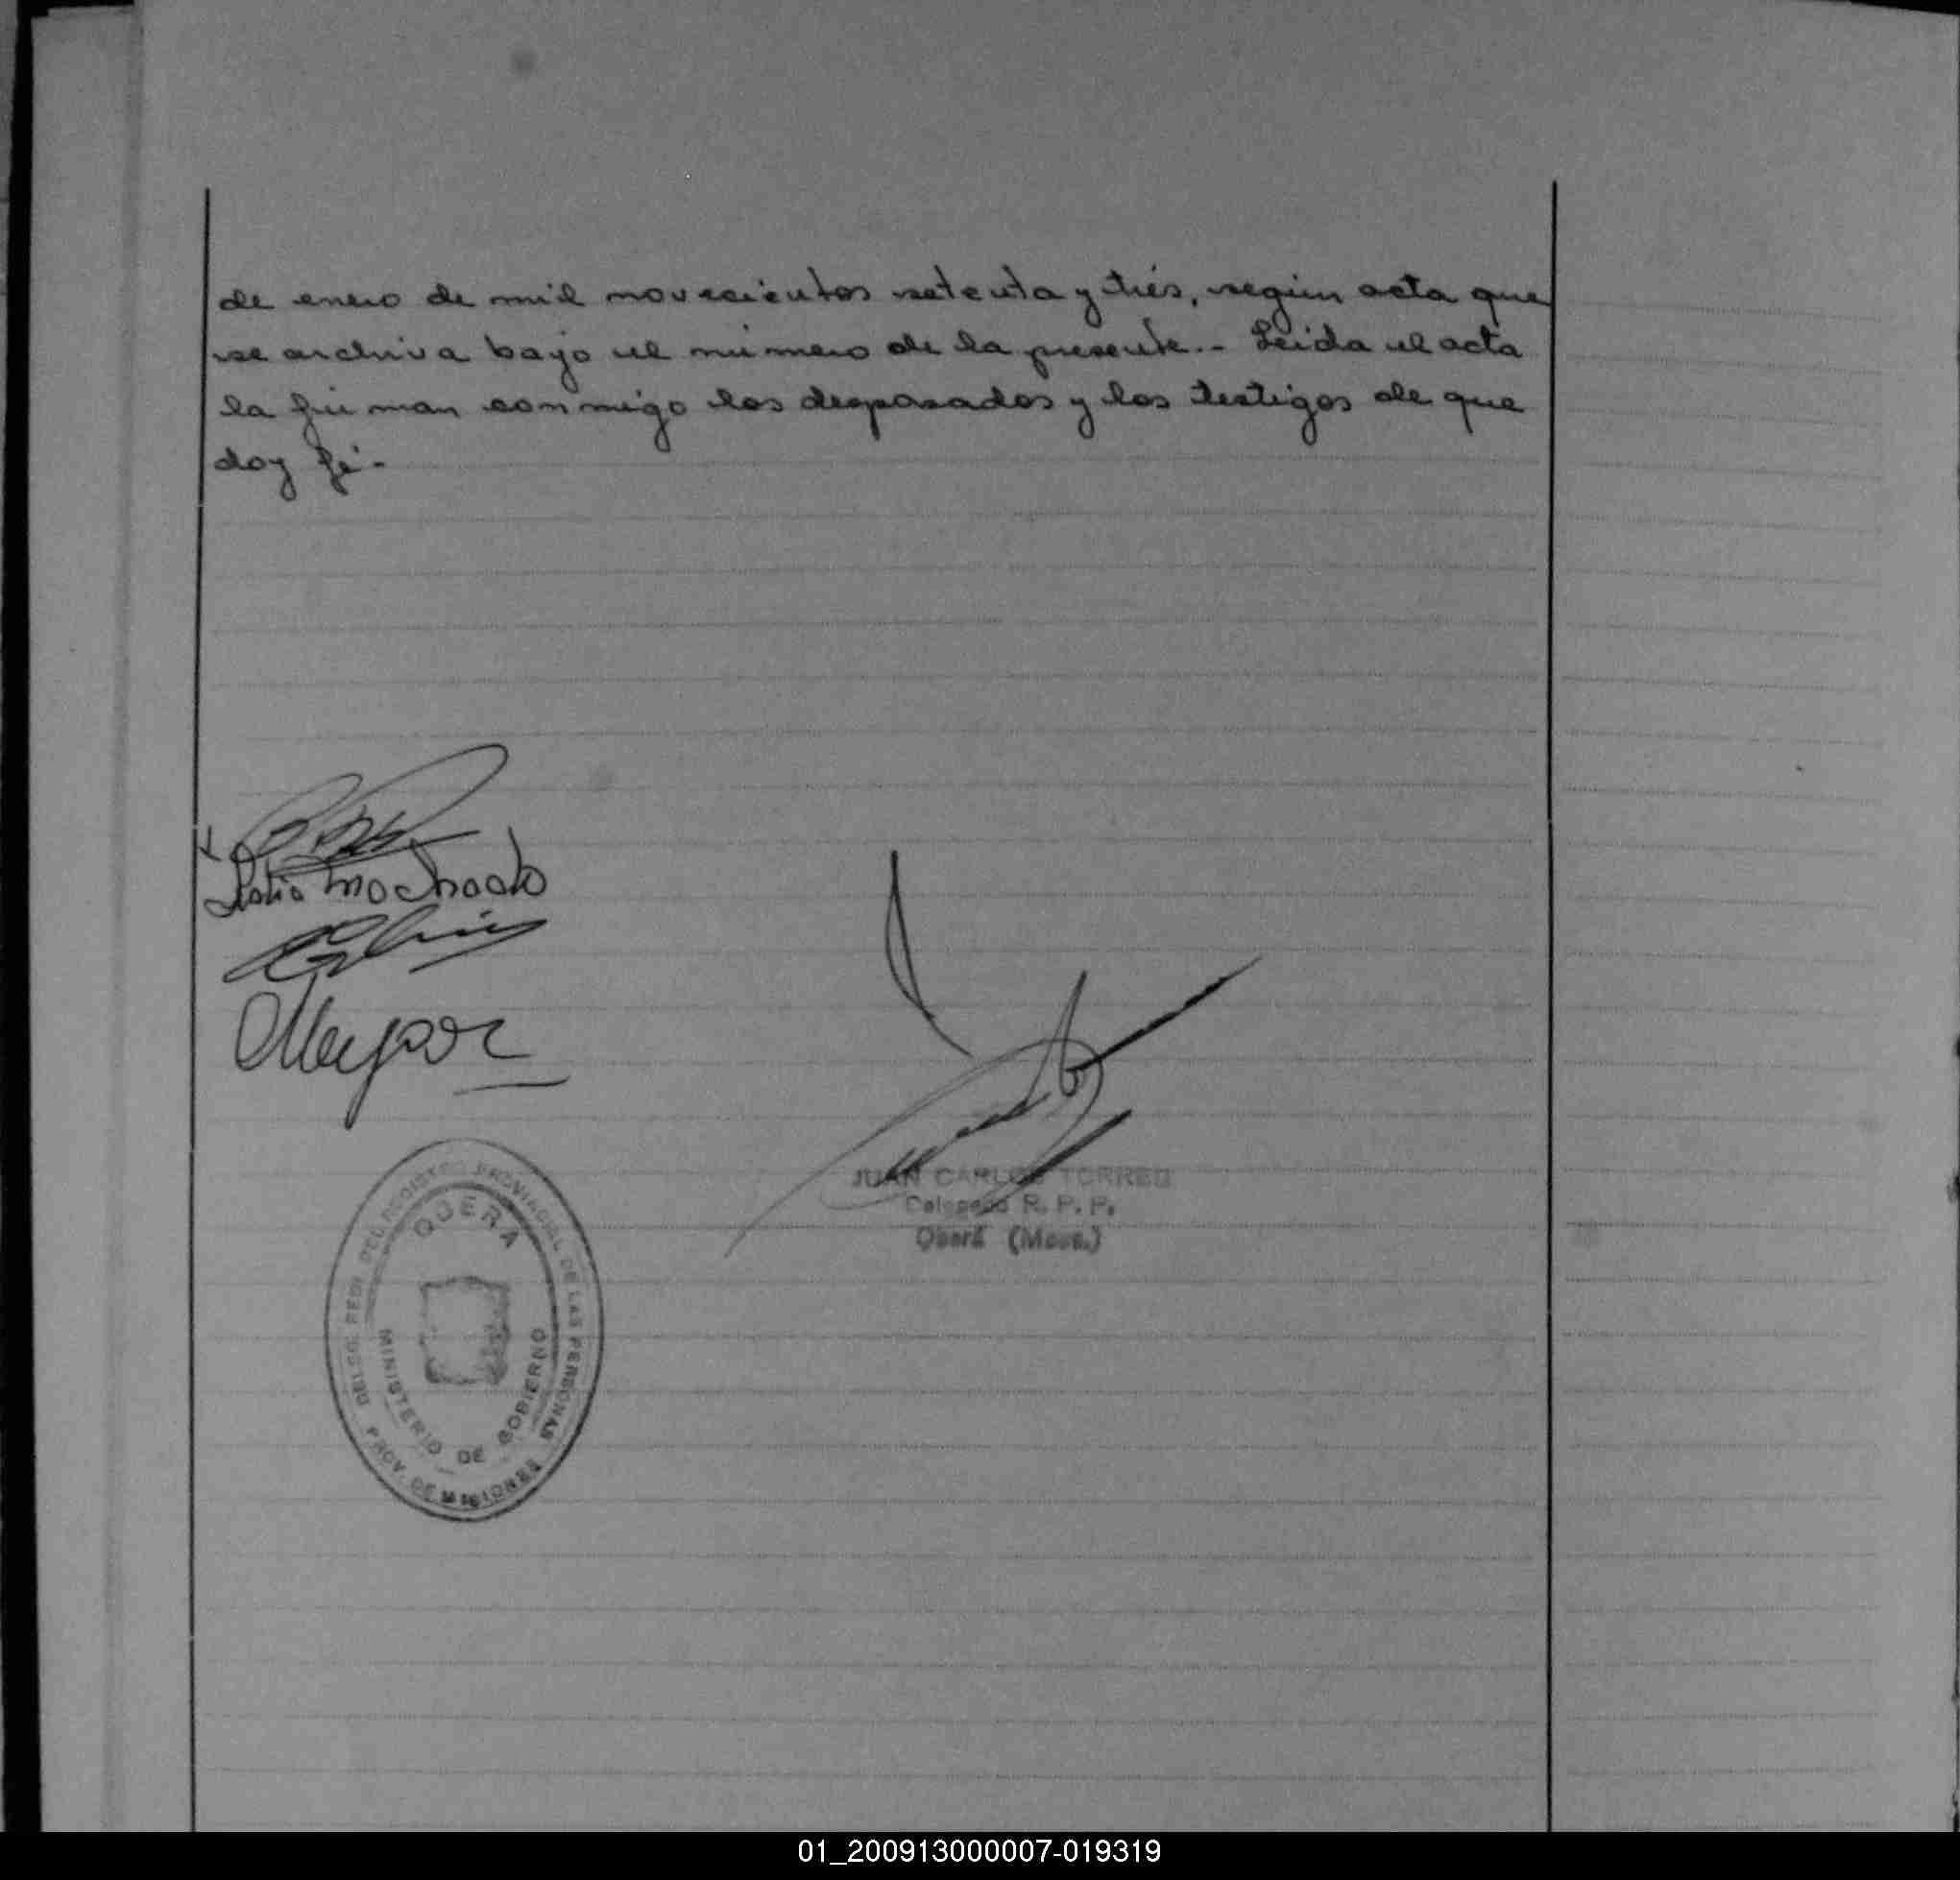 de enero de mil novecientos setenta y trés, según acta que
se archiva bajo el número de la presente.- Leída el acta
la firman conmigo los desposados y los testigos de que
doy fé.-
Machado
JUAN CARLOS TORRES
Delegado R. P. P.
Oberá (Mnes.)
DELEG. PEDI. DEL REGISTRO PROVINCIAL DE LAS PERSONAS
OBERA
MINISTERIO DE GOBIERNO
PROV. DE MISIONES
01_200913000007-019319